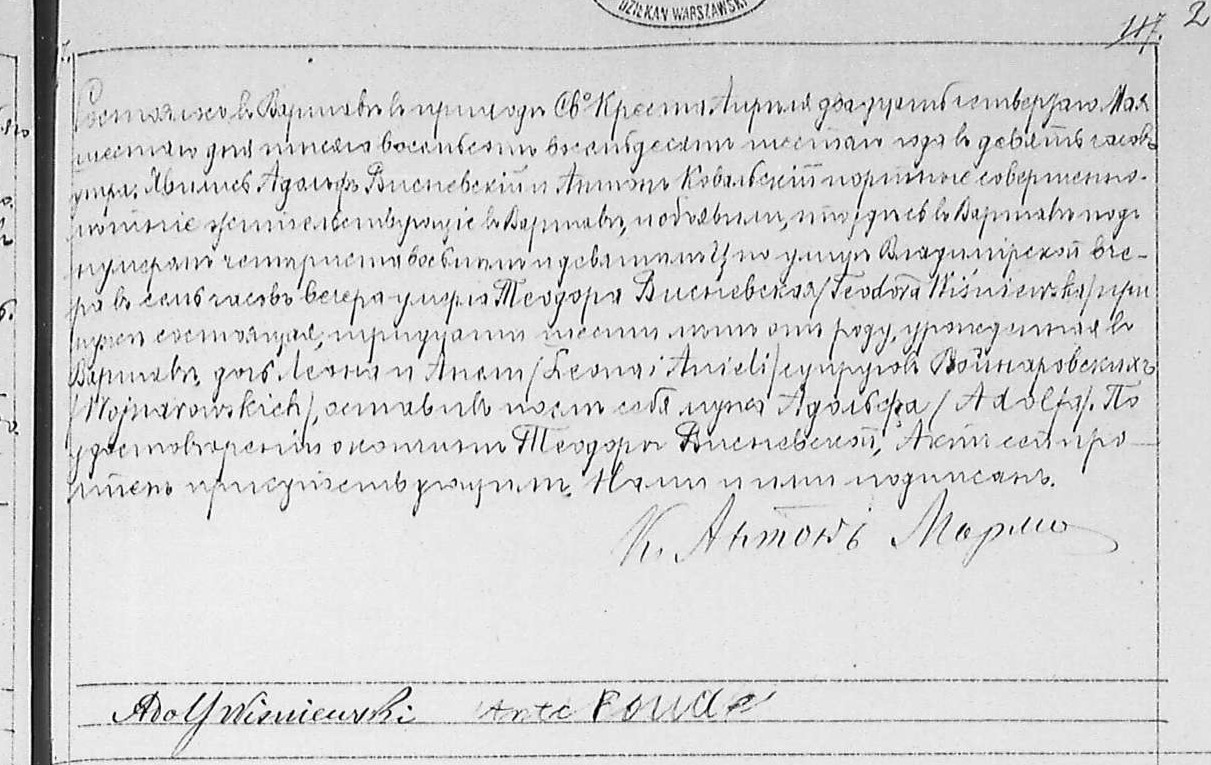 DZIEKAN WARSZAWSKI
117. 2
Состоялось в Варшаве в приходе Св. Креста Апреля двадцать четвертаго Мая
шестаго дня тысяча восемьсот восемьдесят шестаго года в девять часов
утра. Явились Адольф Висневский и Антон Ковальский портные совершенно-
летние жительствующие в Варшаве, и объявили, что здесь в Варшаве под
нумерам четыриста восьмым и девятым по улице Владимирской вче-
ра в семь часов вечера умерла Теодора Висневская /Teodora Wiśniewska/ при
муже состоящая, тридцати шести лет от роду, урожденная в
Варшаве, дочь Леона и Анели /Leona i Anieli/ супругов Войнаровских
/Wojnarowskich/, оставив после себя мужа Адольфа /Adolfa/. По
удостоверении о кончине Теодоры Висневской, Акт сей про-
читен присутствующим, Нами и ими подписан.
К. Антоний
Adolf Wiśniewski